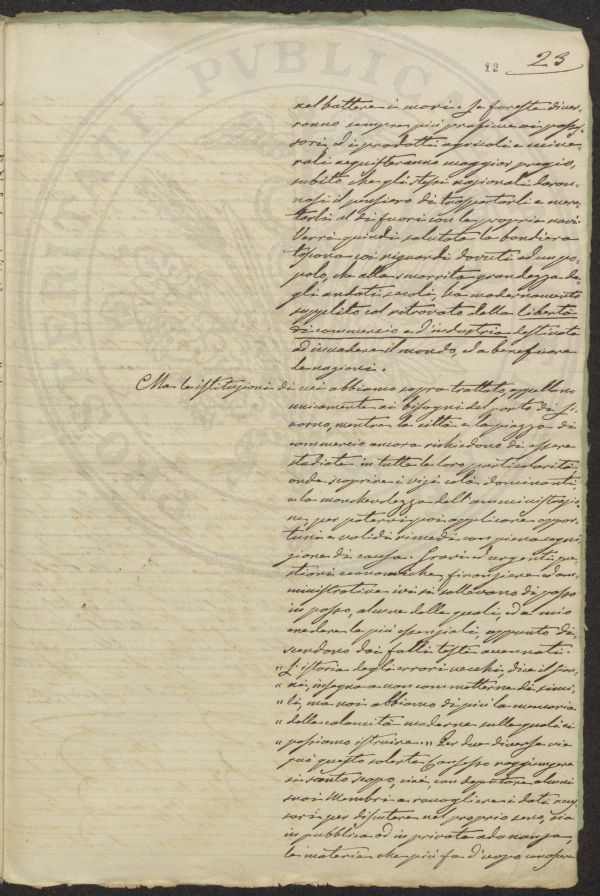 12 23
nel battere i mari e le foreste diver=
ranno sempre più proficue ai posses=
sori, ed i prodotti agricoli e mine=
rali acquisteranno maggior pregio,
subito che gli stessi nazionali daran=
nosi il pensiero di trasportarli e mer=
tarli al di fuori con le proprie navi.
Verrà quindi salutata la bandiera
toscana coi riguardi dovuti ad un po=
polo, che alla smarrita grandezza de=
gli andati secoli, ha modernamente
supplito col ritrovato della libertà
di commercio e d'industria destinata
ad invadere il mondo, ed a beneficare
le nazioni.
Ma le istituzioni di cui abbiamo sopra trattato, appellano
unicamente ai bisogni del porto di Li=
vorno, mentre la città e la piazza di
commercio ancora richiedono di essere
studiate in tutte le loro particolarità,
onde scoprire i vizi colà dominanti
e la manchevolezza dell'amministrazio=
ne, per potervi poi applicare oppor=
tuni e validi rimedi con piena cogni=
zione di causa. Gravi ed urgenti que=
stioni economiche, finanziere ed am=
ministrative ivi si sollevano di passo
in passo, alcune delle quali, ed a mio
credere le più essenziali, appunto di=
scendono dai fatti testè accennati.
" L'istoria degli errori vecchi, dice il
" insegna a non commetterne di simi=
" li, ma noi abbiamo di più la memoria
" delle calamità moderne sulle quali ci
" possiamo istruire " Per due diverse vie
può questo solerte Consesso raggiungere
sì santo scopo, cioè, con deputare alcuni
suoi Membri a raccogliere i dati neces=
sori per discutere nel proprio seno, sia
in pubblica od in privata adunanza,
le materie che più fa d'uopo conoscere